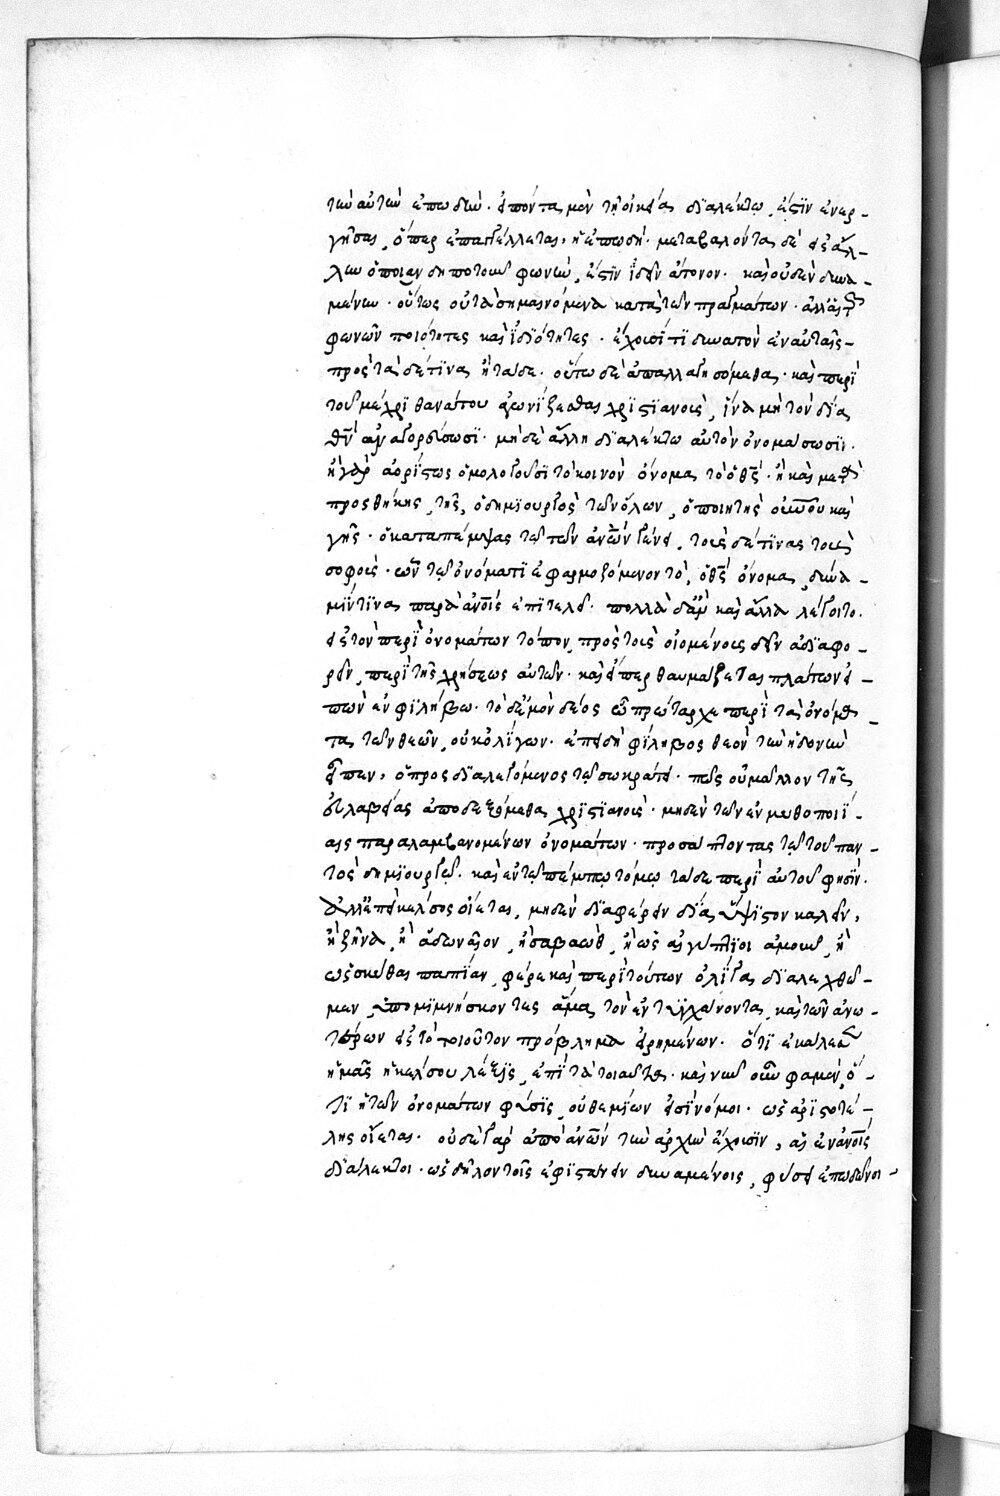 τὴν αὐτὴν ἐπωδὴν· εἰπόντα μὲν τῆ οἰκεία διαλέκτω, ἔστιν ἐνερ-
γῆσαι, ὅπερ ἐπαγγέλλεται, ἡ ἐπωδή· μεταβαλόντα δὲ εἰς ἄλ-
λην ὁποιανδηποτοῦν φωνὴν, ἔστιν ἰδεῖν ἄτονον· καὶ οὐδὲν δυνα-
μένην· οὕτως οὐ τὰ σημαινόμενα κατὰ τῶν πραγμάτων· ἀλλ' αἱ τῶν
φωνῶν ποιότητες καὶ ἰδιότητες· ἔχουσί τι δυνατὸν ἐν αὐταῖς
πρὸς τὰ δέ τινα ἢ τάδε· οὕτω δὲ ἀπαλλαγησόμεθα· καὶ περὶ
τοῦ μέχρι θανάτου ἀγωνίζεσθαι χριστιανοὺς, ἵνα μὴ τὸν δία
θν̄ ἀναγορεύσωσι· μηδὲ ἄλλη διαλέκτω αὐτὸν ὀνομάσωσιν·
ἢ γὰρ ἀορίστως ὁμολογοῦσι τὸ κοινὸν ὄνομα τὸ ὁ θς̄· ἢ καὶ μετὰ
προσθήκης, τῆς, ὁ δημιουργὸς τῶν ὅλων, ὁ ποιητὴς οὐν̄ου καὶ
γῆς· ὁ καταπέμψας τῶ τῶν ἀν̄ων γένει, τοὺς δέ τινας τοὺς
σοφοὺς· ὧν τῶ ὀνόματι ἐφαρμοζόμενον τὸ, ὁ θς̄ ὄνομα, δύνα-
μίν τινα παρὰ ἀν̄οις ἐπιτελεῖ· πολλὰ δ' ἂν καὶ ἄλλα λέγοιτο
εἰς τὸν περὶ ὀνομάτων τόπον, πρὸς τοὺς οἰομένους δεῖν ἀδιαφο-
ρεῖν, περὶ τῆς χρήσεως αὐτῶν· καὶ εἴπερ θαυμάζεται πλάτων εἰ-
πὼν ἐν φιλήβω· τὸ δ' ἐμὸν δέος ὦ πρώταρχε περὶ τὰ ὀνόμα-
τα τῶν θεῶν, οὐκ ὀλίγον· ἐπειδὴ φίληβος θεὸν τὴν ἡδονὴν
εἶπεν, ὁ προσδιαλεγόμενος τῶ σωκράτει· πῶς οὐ μᾶλλον τῆς
εὐλαβείας ἀποδεξόμεθα χριστιανοὺς· μηδὲν τῶν ἐν μυθοποιΐ-
αις παραλαμβανομένων ὀνομάτων· προσάπτοντας τῶ τοῦ παν-
τὸς δημιουργῶ. καὶ ἐν τῶ πέμπτω τόμω τάδε περὶ αὐτοῦ φησίν·
Ἀλλ' ἐπεὶ κέλσος οἴεται, μηδὲν διαφέρειν δία ὕψιστον καλεῖν,
ἢ ζῆνα, ἢ ἀδωναῖον, ἢ σαβαὼθ, ἢ ὡς αἰγύπτιοι ἀμοῦν, ἢ
ὡς σκύθαι παπαῖον, φέρε καὶ περὶ τούτων ὀλίγα διαλεχθῶ-
μεν, ὑπομιμνήσκοντες ἅμα τὸν ἐντυγχάνοντα, καὶ τῶν ἀνω-
τέρων εἰς τὸ τοιοῦτον πρόβλημα εἰρημένων· ὅτι ἐκάλεσεν
ἡμᾶς ἡ κέλσου λέξις, ἐπὶ τὰ τοιαῦτα· καὶ νῦν οὖν φαμὲν, ὅ-
τι ἡ τῶν ὀνομάτων φύσις, οὐ θεμένων εἰσὶ νόμοι· ὡς ἀριστοτέ-
λης οἴεται· οὐδὲ γὰρ ἀπὸ ἀν̄ων τὴν ἀρχὴν ἔχουσιν, αἱ ἐν ἀν̄οις
διάλεκτοι· ὡς δῆλον τοῖς ἐφιστάνειν δυναμένοις, φύσει ἐπωδῶν οἰ-